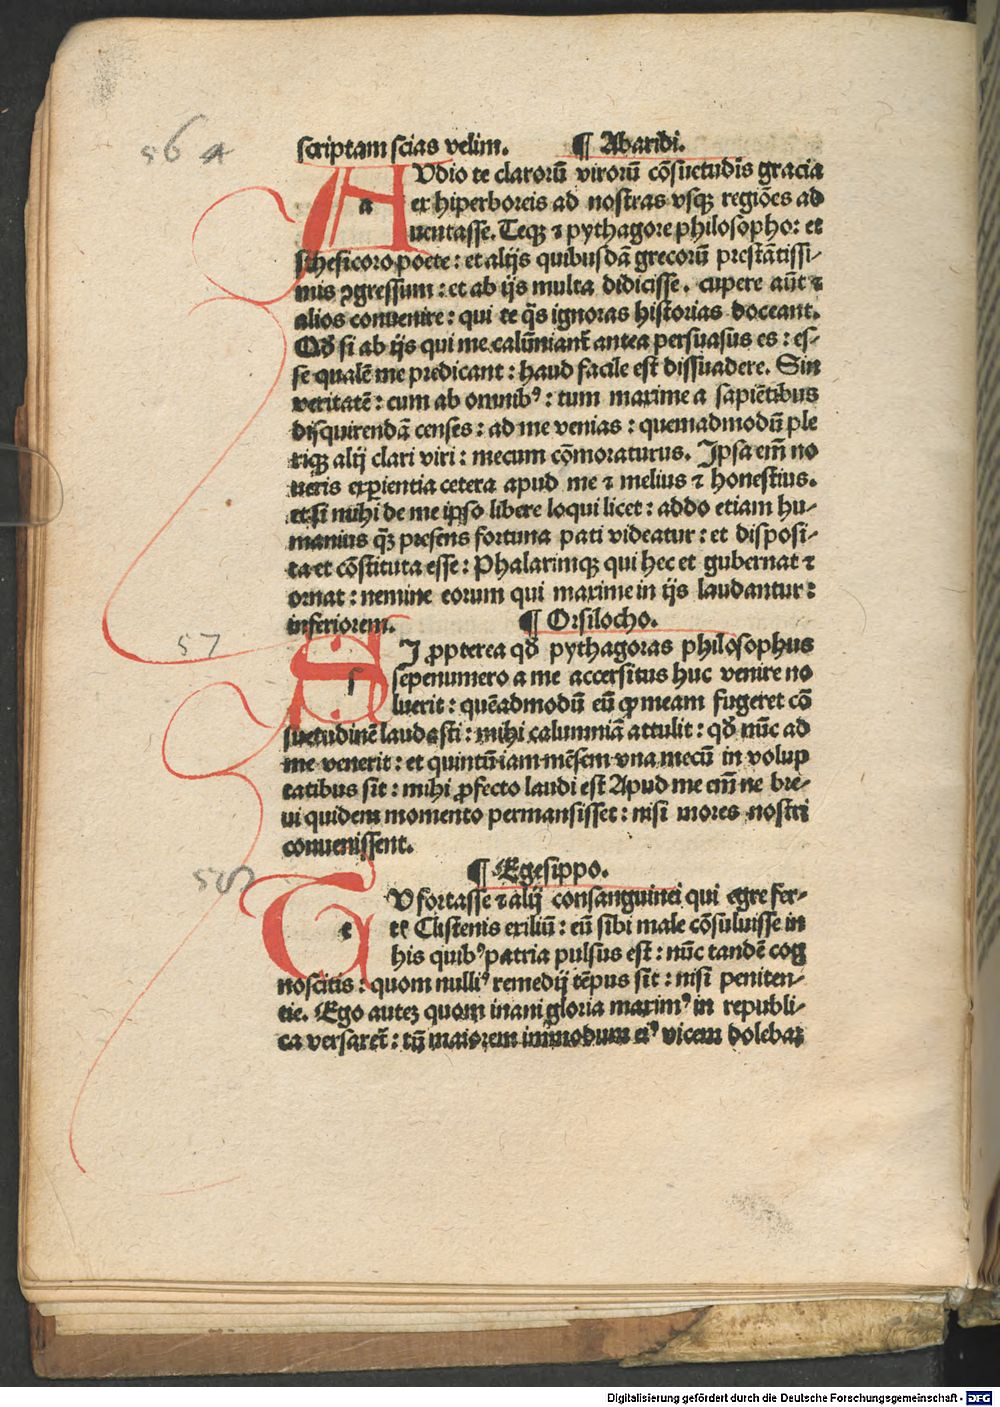 56 a
scriptam scias velim. ¶ Abaridi.
AUdio te clarorū virorū cōsuetudīs gracia
a ex hiperboreis ad nostras vsqꝫ regiōes ad
uentasse. Teqꝫ ⁊ pythagore philosopho: et
sthesicoro poete: et alijs quibusdā grecorū prestātissi-
mis ꝯgressum: et ab ijs multa didicisse. cupere aūt ⁊
alios conuenire: qui te q̄s ignoras historias doceant.
Qđ si ab ijs qui me calūniant̄ antea persuasus es: es-
se qualē me predicant: haud facile est dissuadere. Sin
veritatē: cum ab omnibꝰ: tum maxime a sapiētibus
disquirendā censes: ad me venias: quemadmodū ple
riqꝫ alij clari viri: mecum cōmoraturus. Ipsa em̄ no
ueris exꝑientia cetera apud me ⁊ melius ⁊ honestius.
et si mihi de me ipso libere loqui licet: addo etiam hu-
manius q̄ꝫ presens fortuna pati videatur: et disposi-
ta et cōstituta esse: Phalarimqꝫ qui hec et gubernat ⁊
ornat: nemine eorum qui maxime in ijs laudantur:
inferiorem. ¶ Orsilocho.
57
SI ꝓpterea qđ pythagoras philosophus
s sepenumero a me accersitus huc venire no
luerit: quēadmodū eū ꝙ meam fugeret cō
suetudinē laudasti: mihi calumniā attulit: qđ nūc ad
me venerit: et quintū iam mēsem vna mecū in volup
tatibus sit: mihi ꝓfecto laudi est Apud me em̄ ne bre-
ui quidem momento permansisset: nisi mores nostri
conuenissent.
58
¶ Egesippo.
TU fortasse ⁊ alij consanguinei qui egre fer-
t tꝭ Clistenis exiliū: eū sibi male cōsuluisse in
his quibꝰ patria pulsus est: nūc tandē cog
noscitis: quom nulliꝰ remedij tēpus sit: nisi peniten-
tie. Ego auteꝫ quom inani gloria maximꝰ in republi-
ca versaret̄: tū maiorem immodum eiꝰ vicem dolebaꝫ
Digitalisierung gefördert durch die Deutsche Forschungsgemeinschaft - DFG